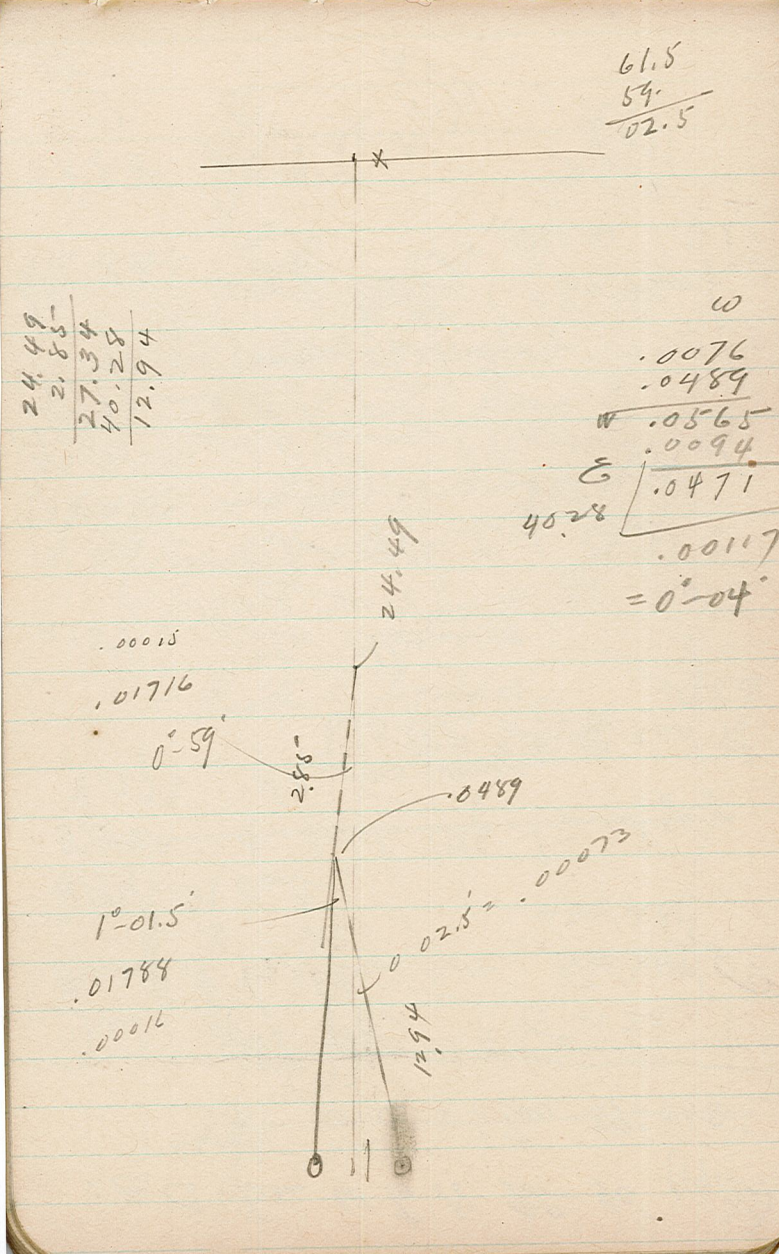 61.5
59.
02.5
x
24.49
2.85
27.34
40.28
12.94
W
.0076
.0489
W .0565
.0094
E .0471
40.28
.00117
= 0°-04'
24.49
.00015
.01716
0°-59'
2.85
.0489
0 02.5' = .00073
1°-01.5'
.01788
.00016
12.94